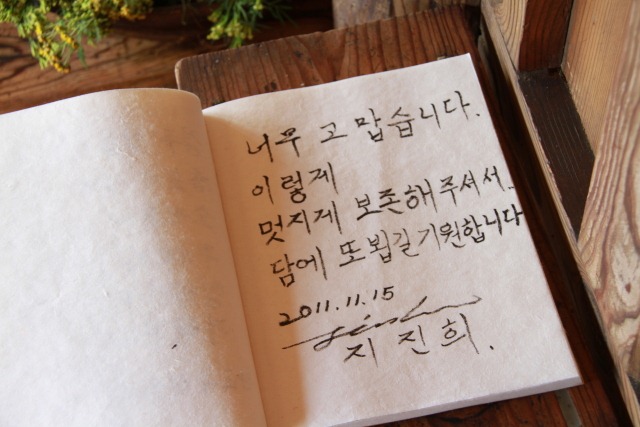 너무 고맙습니다.
이렇게
멋지게 보존해주셔서..
담에 또 뵙길 기원합니다
2011.11.15
지진희.